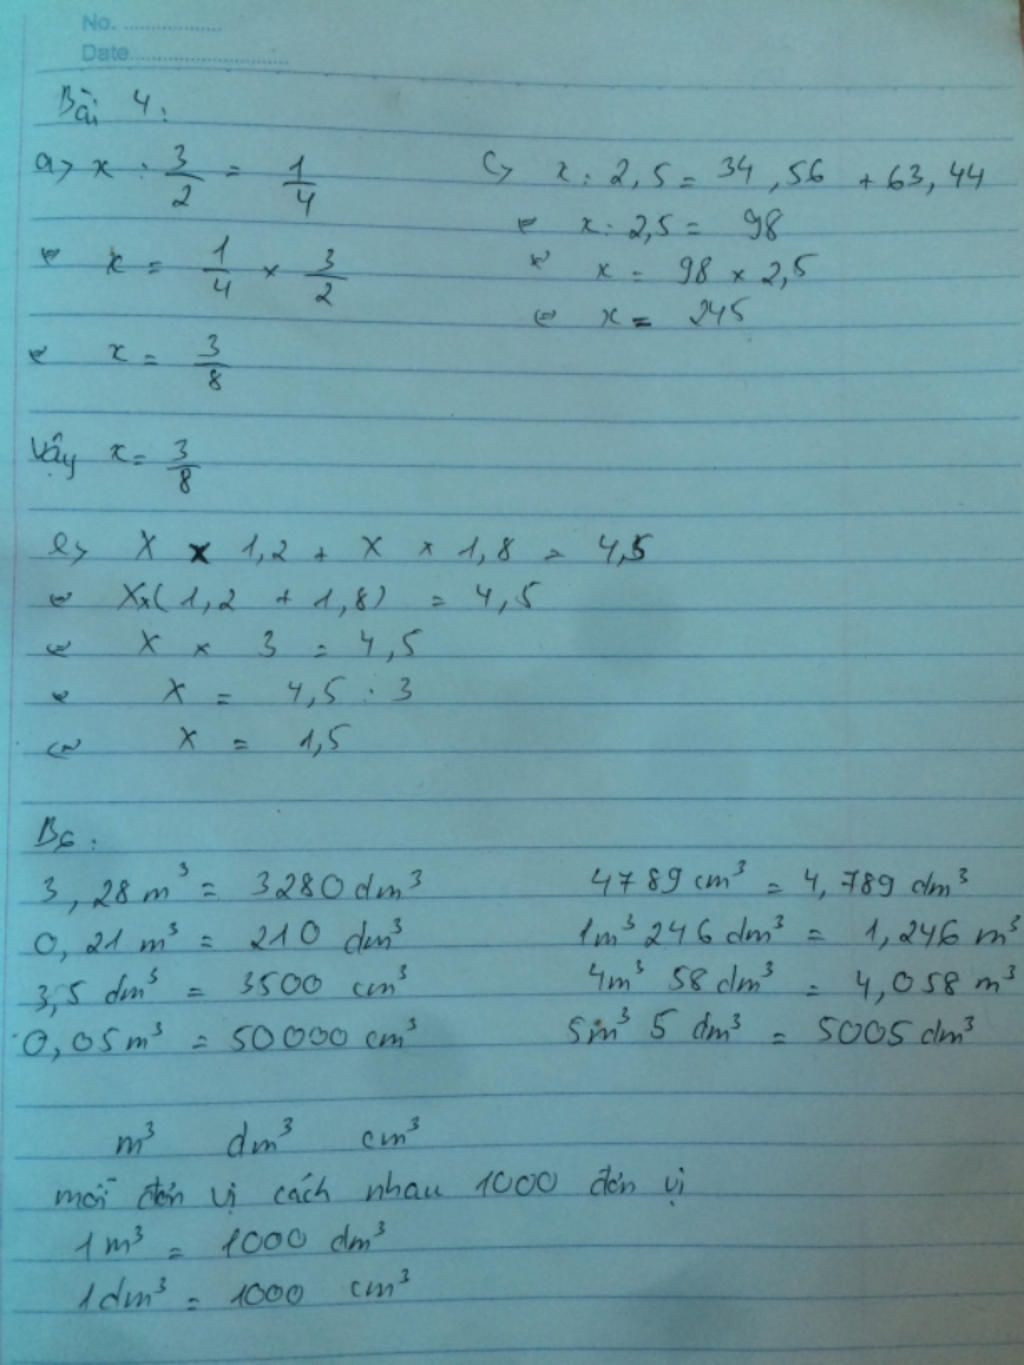 No. ..................
Date..............................
Bài 4:
a> x : 3/2 = 1/4
⇔ x = 1/4 × 3/2
⇔ x = 3/8
Vậy x = 3/8
c> x : 2,5 = 34,56 + 63,44
⇔ x : 2,5 = 98
⇔ x = 98 × 2,5
⇔ x = 245
e> X × 1,2 + X × 1,8 = 4,5
⇔ X × (1,2 + 1,8) = 4,5
⇔ X × 3 = 4,5
⇔ X = 4,5 : 3
⇔ X = 1,5
B6:
3,28 m³ = 3280 dm³
0,21 m³ = 210 dm³
3,5 dm³ = 3500 cm³
0,05 m³ = 50000 cm³
4789 cm³ = 4,789 dm³
1m³ 246 dm³ = 1,246 m³
4m³ 58 dm³ = 4,058 m³
5m³ 5 dm³ = 5005 dm³
m³ dm³ cm³
mỗi đơn vị cách nhau 1000 đơn vị
1 m³ = 1000 dm³
1 dm³ = 1000 cm³